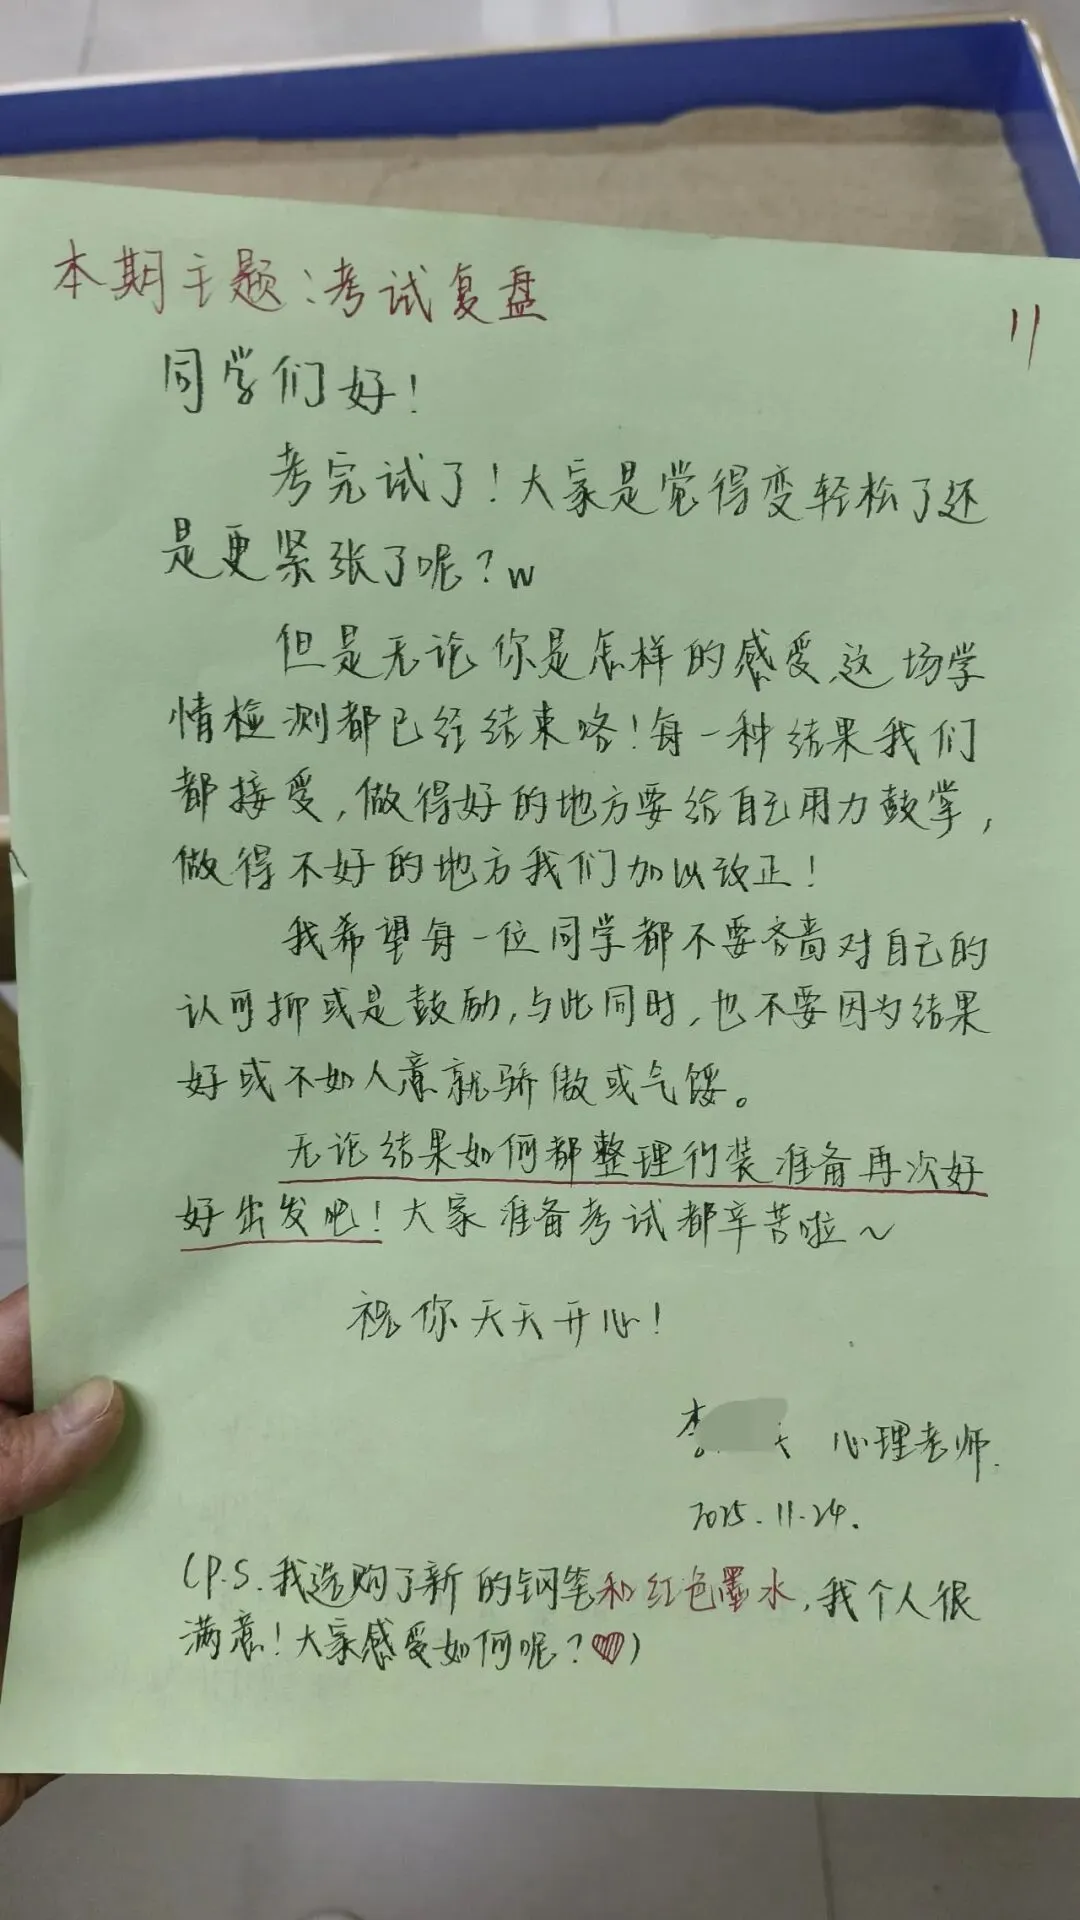 本期主题:考试复盘
11
同学们好!
考完试了!大家是觉得变轻松了还
是更紧张了呢?w
但是无论你是怎样的感受,这场学
情检测都已经结束咯!每一种结果我们
都接受,做得好的地方要给自己用力鼓掌,
做得不好的地方我们加以改正!
我希望每一位同学都不要吝啬对自己的
认可抑或是鼓励,与此同时,也不要因为结果
好或不如人意就骄傲或气馁。
无论结果如何都整理行装准备再次好
好出发吧!大家准备考试都辛苦啦~
祝你天天开心!
李 心理老师.
2025.11.24.
(P.S.我选购了新的钢笔和红色墨水,我个人很
满意!大家感受如何呢?♡)